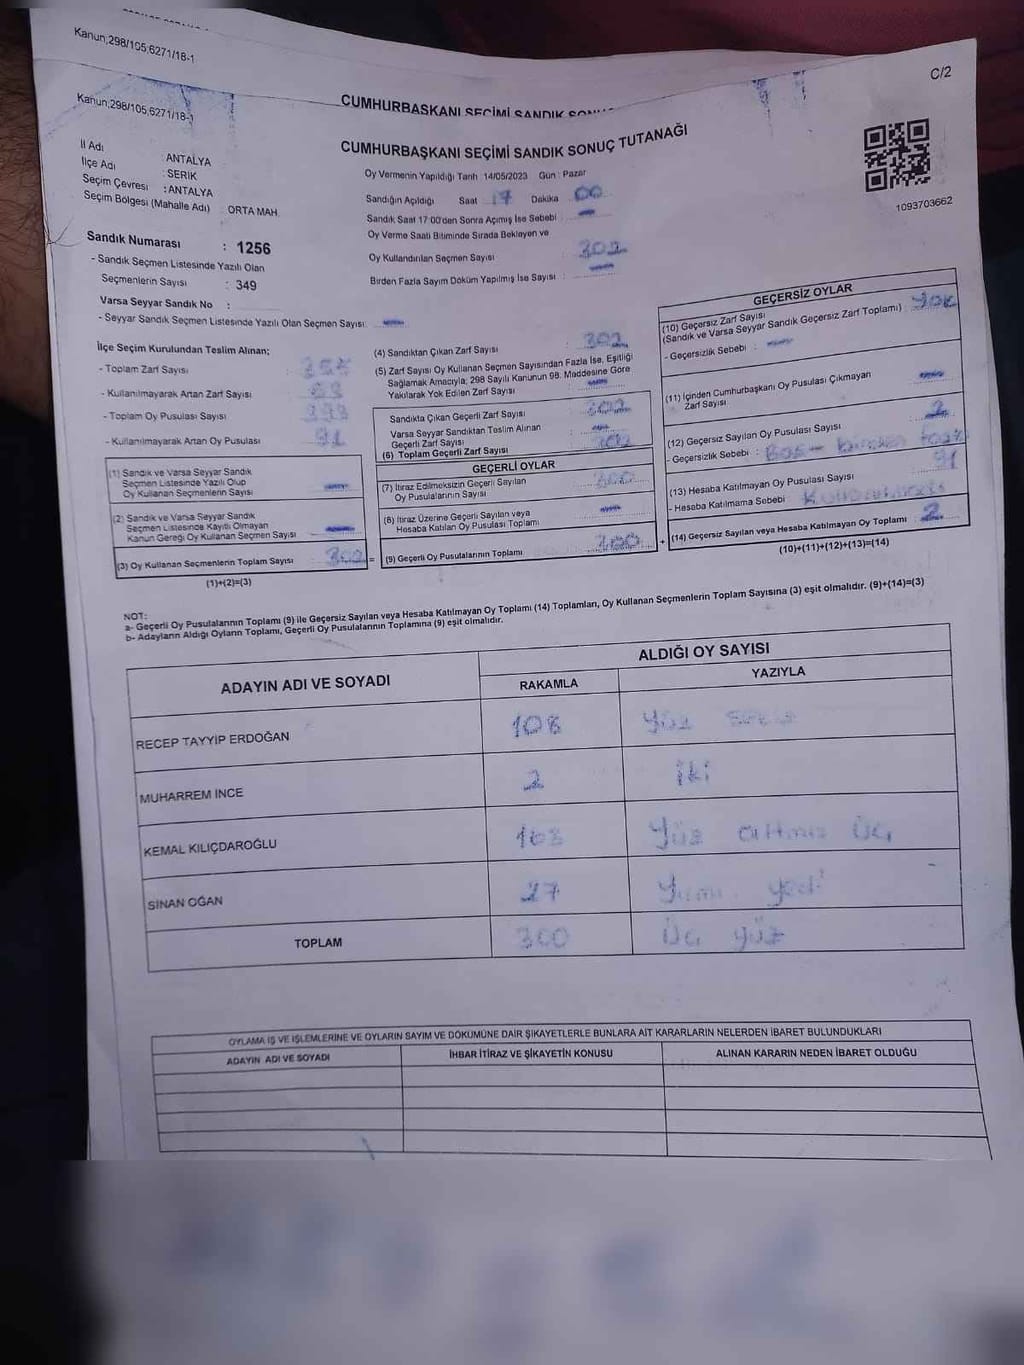 Kanun;298/105,6271/18-1
C/2
CUMHURBAŞKANI SEÇİMİ SANDIK
Kanun;298/105,6271/18-1
CUMHURBAŞKANI SEÇİMİ SANDIK SONUÇ TUTANAĞI
İl Adı : ANTALYA
İlçe Adı : SERİK
Seçim Çevresi : ANTALYA
Seçim Bölgesi (Mahalle Adı) ORTA MAH.
Oy Vermenin Yapıldığı Tarih 14/05/2023 Gün : Pazar
Sandığın Açıldığı Saat 17 Dakika 00
Sandık Saat 17:00'den Sonra Açımış İse Sebebi : —
Oy Verme Saati Bitiminde Sırada Bekleyen ve
Oy Kullandırılan Seçmen Sayısı 302
Birden Fazla Sayım Döküm Yapılmış İse Sayısı : —
1093703662
Sandık Numarası : 1256
- Sandık Seçmen Listesinde Yazılı Olan
Seçmenlerin Sayısı : 349
Varsa Seyyar Sandık No :
- Seyyar Sandık Seçmen Listesinde Yazılı Olan Seçmen Sayısı: —
İlçe Seçim Kurulundan Teslim Alınan;
- Toplam Zarf Sayısı :
- Kullanılmayarak Artan Zarf Sayısı :
- Toplam Oy Pusulası Sayısı :
- Kullanılmayarak Artan Oy Pusulası : 91
(1) Sandık ve Varsa Seyyar Sandık
Seçmen Listesinde Yazılı Olup
Oy Kullanan Seçmenlerin Sayısı —
(2) Sandık ve Varsa Seyyar Sandık
Seçmen Listesinde Kayıtlı Olmayan
Kanun Gereği Oy Kullanan Seçmen Sayısı —
(3) Oy Kullanan Seçmenlerin Toplam Sayısı 302 =
(1)+(2)=(3)
(4) Sandıktan Çıkan Zarf Sayısı : 302
(5) Zarf Sayısı Oy Kullanan Seçmen Sayısından Fazla İse, Eşitliği
Sağlamak Amacıyla, 298 Sayılı Kanunun 98. Maddesine Göre
Yakılarak Yok Edilen Zarf Sayısı —
Sandıkta Çıkan Geçerli Zarf Sayısı : 302
Varsa Seyyar Sandıktan Teslim Alınan
Geçerli Zarf Sayısı : —
(6) Toplam Geçerli Zarf Sayısı 302
GEÇERLİ OYLAR
(7) İtiraz Edilmeksizin Geçerli Sayılan
Oy Pusulalarının Sayısı 300
(8) İtiraz Üzerine Geçerli Sayılan veya
Hesaba Katılan Oy Pusulası Toplamı —
(9) Geçerli Oy Pusulalarının Toplamı 300 +
GEÇERSİZ OYLAR
(10) Geçersiz Zarf Sayısı
(Sandık ve Varsa Seyyar Sandık Geçersiz Zarf Toplamı) : YOK
- Geçersizlik Sebebi : —
(11) İçinden Cumhurbaşkanı Oy Pusulası Çıkmayan
Zarf Sayısı —
(12) Geçersiz Sayılan Oy Pusulası Sayısı 2
- Geçersizlik Sebebi : Boş - birden fazla
(13) Hesaba Katılmayan Oy Pusulası Sayısı 91
- Hesaba Katılmama Sebebi
(14) Geçersiz Sayılan veya Hesaba Katılmayan Oy Toplamı : 2
(10)+(11)+(12)+(13)=(14)
NOT:
a- Geçerli Oy Pusulalarının Toplamı (9) ile Geçersiz Sayılan veya Hesaba Katılmayan Oy Toplamı (14) Toplamları, Oy Kullanan Seçmenlerin Toplam Sayısına (3) eşit olmalıdır. (9)+(14)=(3)
b- Adayların Aldığı Oyların Toplamı, Geçerli Oy Pusulalarının Toplamına (9) eşit olmalıdır.
ADAYIN ADI VE SOYADI
ALDIĞI OY SAYISI
RAKAMLA YAZIYLA
RECEP TAYYİP ERDOĞAN 108 yüz sekiz
MUHARREM İNCE 2 iki
KEMAL KILIÇDAROĞLU 163 Yüz altmış üç
SİNAN OĞAN 27 yirmi yedi
TOPLAM 300 Üç yüz
OYLAMA İŞ VE İŞLEMLERİNE VE OYLARIN SAYIM VE DÖKÜMÜNE DAİR ŞİKAYETLERLE BUNLARA AİT KARARLARIN NELERDEN İBARET BULUNDUKLARI
ADAYIN ADI VE SOYADI İHBAR İTİRAZ VE ŞİKAYETİN KONUSU ALINAN KARARIN NEDEN İBARET OLDUĞU